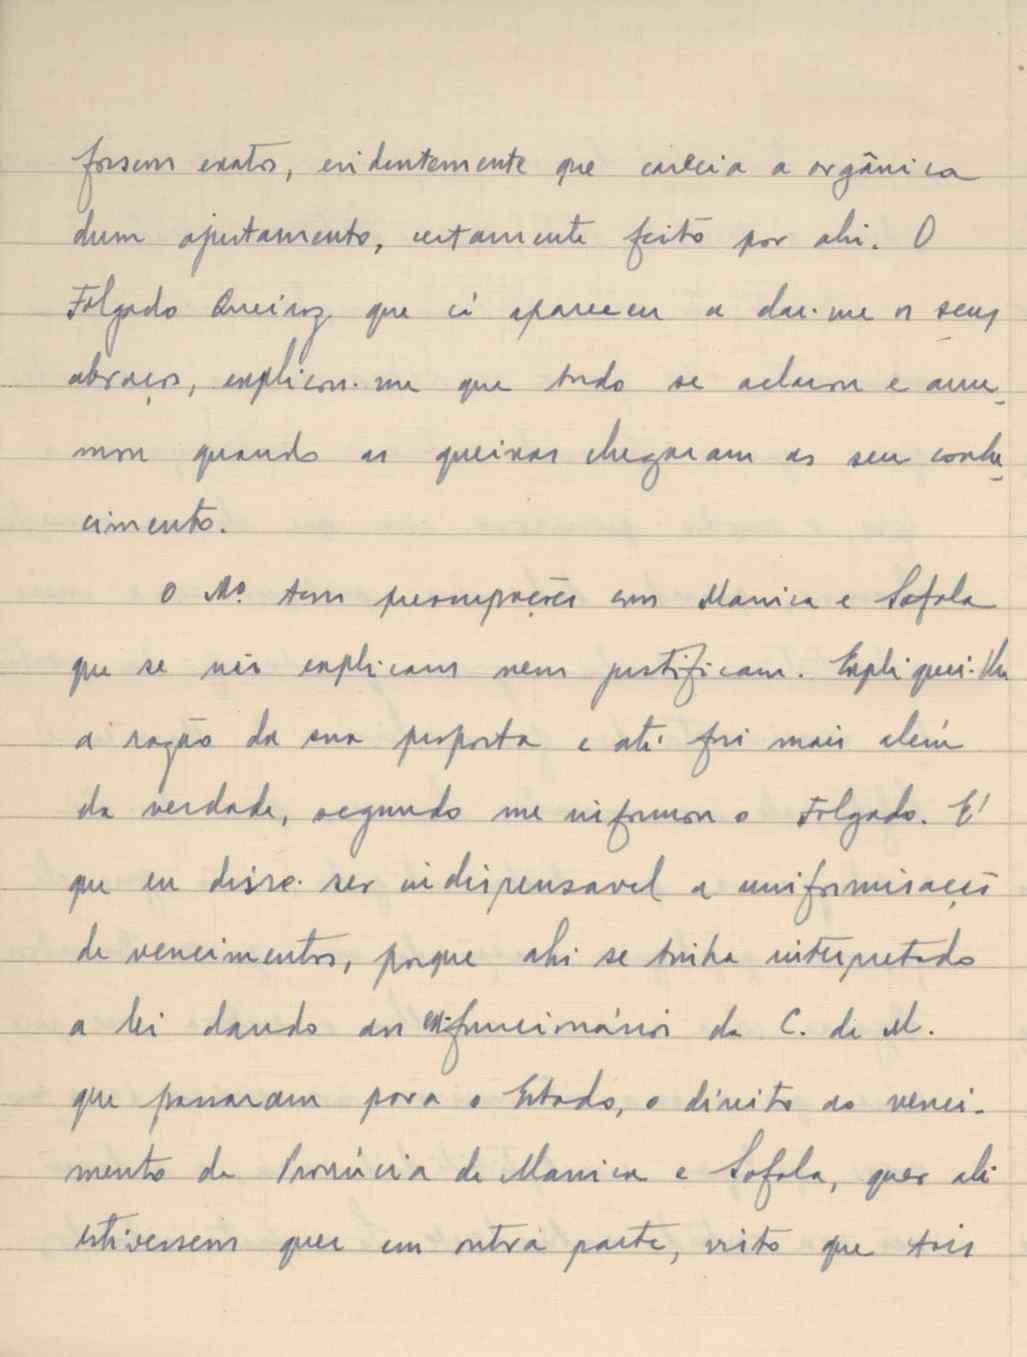 fossem exatos, evidentemente que carecia a orgânica
dum ajustamento, certamente feito por ahi. O
Folgado Queiroz que cá apareceu a dar-me os seus
abraços, explicou-me que tudo se aclarou e arru-
mou quando as queixas chegaram ao seu conhe-
cimento.
O Mo. tem preocupações com Manica e Sofala
que se não explicam nem justificam. Expliquei-lhe
a razão da sua proposta e até fui mais além
da verdade, segundo me informou o Folgado. E'
que eu disse ser indispensavel a uniformisação
de vencimentos, porque ahi se tinha interpretado
a lei dando aos ex-funcionários da C. de M.
que passaram para o Estado, o direito ao venci-
mento da Provincia de Manica e Sofala, quer ahi
estivessem quer em outra parte, visto que tais